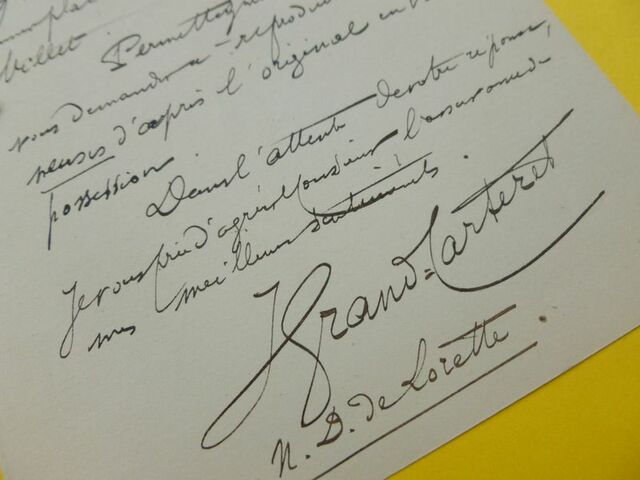 Millet. Permettez
vous demander a - reprodu
neuses d'après l'original en
possession.
Dans l'attente de votre réponse,
Je vous prie d'agréer Monsieur l'assurance de
mes meilleurs sentiments.
J Grand=Carteret
N. D. de Lorette.